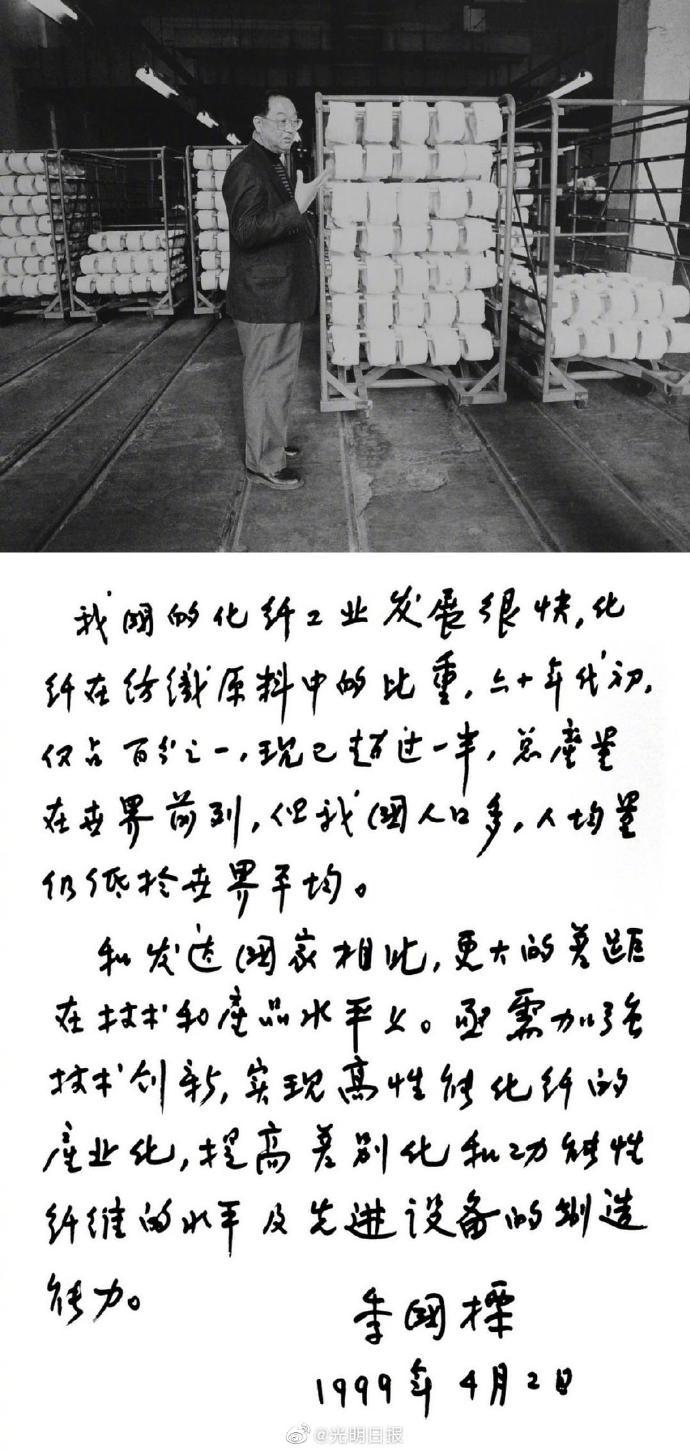 我國的化纤工业发展很快,化
纤在纺織原料中的比重,六十年代初,
仅占百分之一,现已超过一半,总產量
在世界前列,但我國人口多,人均量
仍低於世界平均。
和发达國家相比,更大的差距
在技术和產品水平上。亟需加强
技术创新,实现高性能化纤的
產业化,提高差别化和功能性
纤维的水平及先进设备的制造
能力。
季國標
1999年4月2日
@光明日报